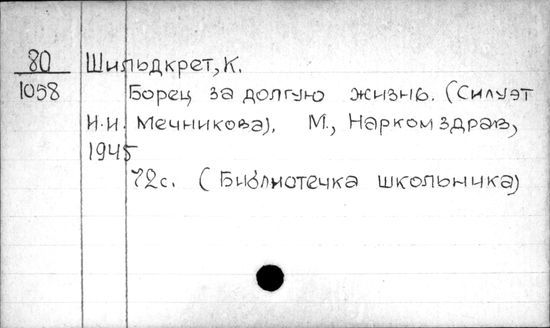 80 Шильдкрет, К.
1058 Борец за долгую жизнь. (Силуэт
И.И. Мечникова). М., Наркомздрав,
1945
72с. (Библиотечка школьника)